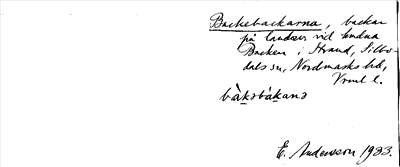 Backebackarna, backar
på landsv. vid södra
Backen i Strand, Silbo-
dals sn, Nordmarks hd,
Vrml l.
bàkəbákanə
E. Andersson 1933.